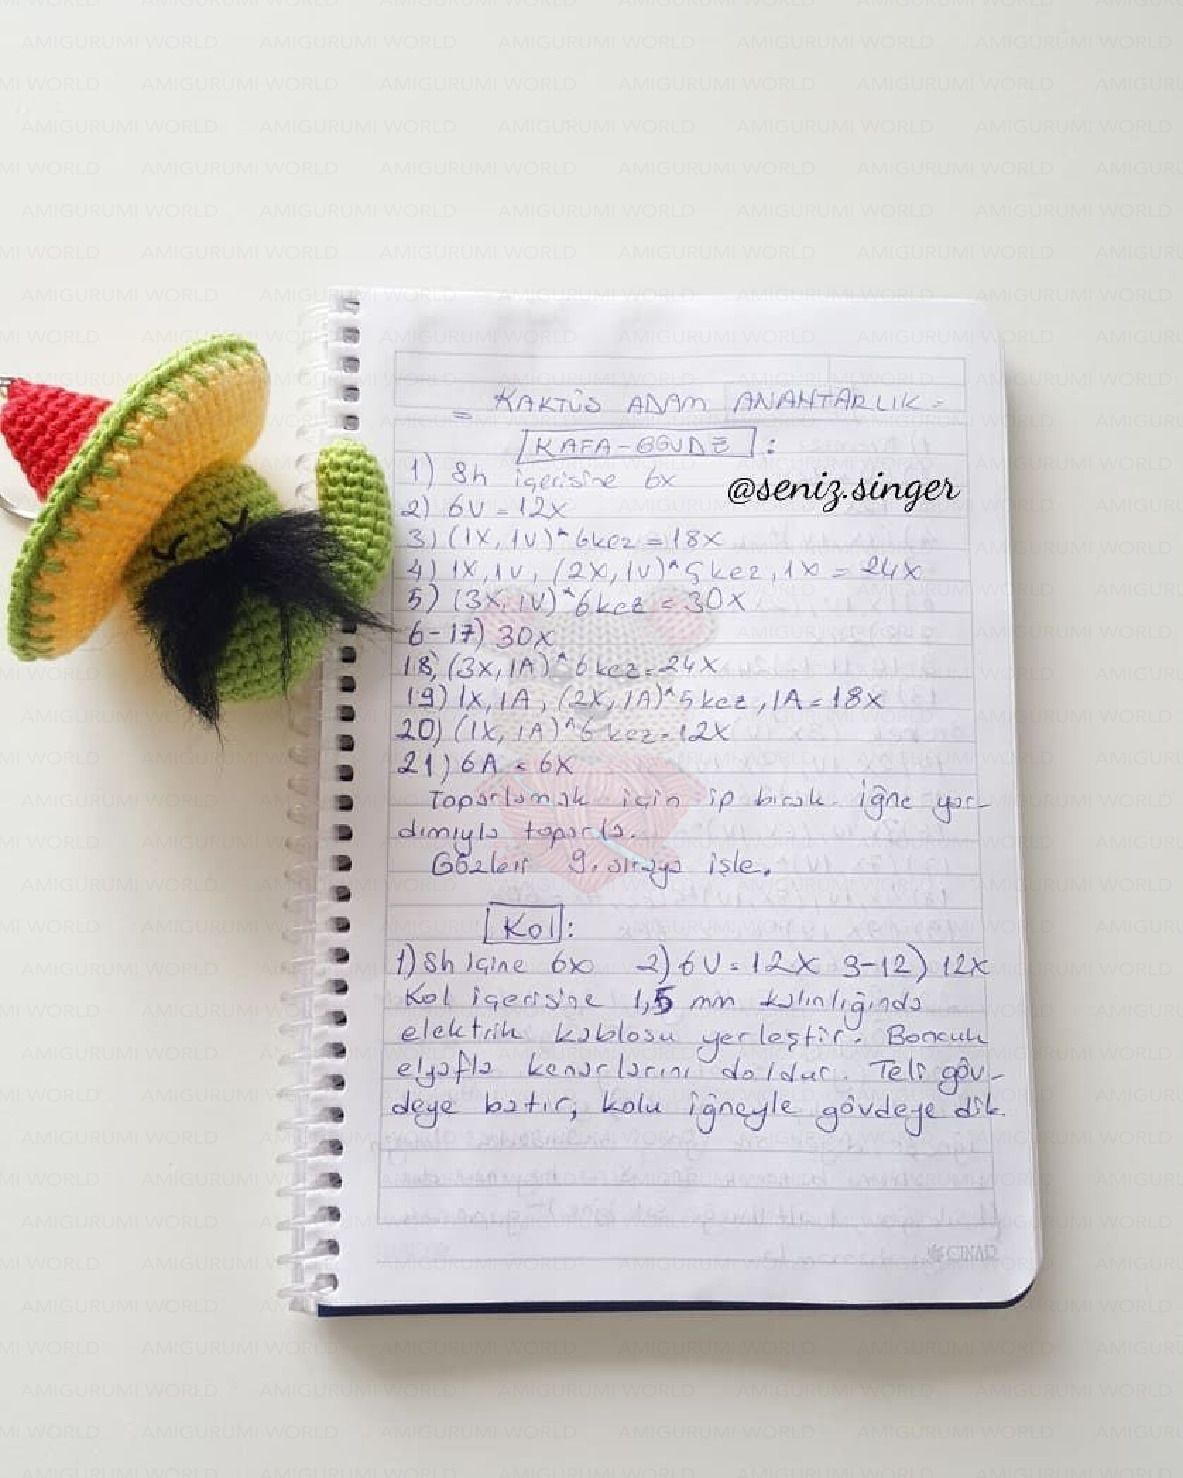 = KAKTÜS ADAM ANAHTARLIK =
KAFA-GÖVDE :
@seniz.singer
1) Sh içerisine 6x
2) 6V = 12X
3) (1X, 1V)^6kez = 18X
4) 1X, 1V, (2X, 1V)^5kez, 1X = 24X
5) (3X, 1V)^6kez = 30X
6-17) 30X
18) (3X, 1A)^6kez = 24X
19) 1X, 1A, (2X, 1A)^5kez, 1A = 18X
20) (1X, 1A)^6kez = 12X
21) 6A = 6X
Toparlamak için ip bırak. İğne yar-
dımıyla toparla.
Gözleri 9. sıraya işle.
Kol :
1) Sh içine 6x 2) 6V = 12X 3-12) 12X
Kol içerisine 1,5 mm kalınlığında
elektrik kablosu yerleştir. Boncuk
elyafla kenarlarını doldur. Teli göv-
deye batır, kolu iğneyle gövdeye dik.
ÇINAR
AMIGURUMI WORLD